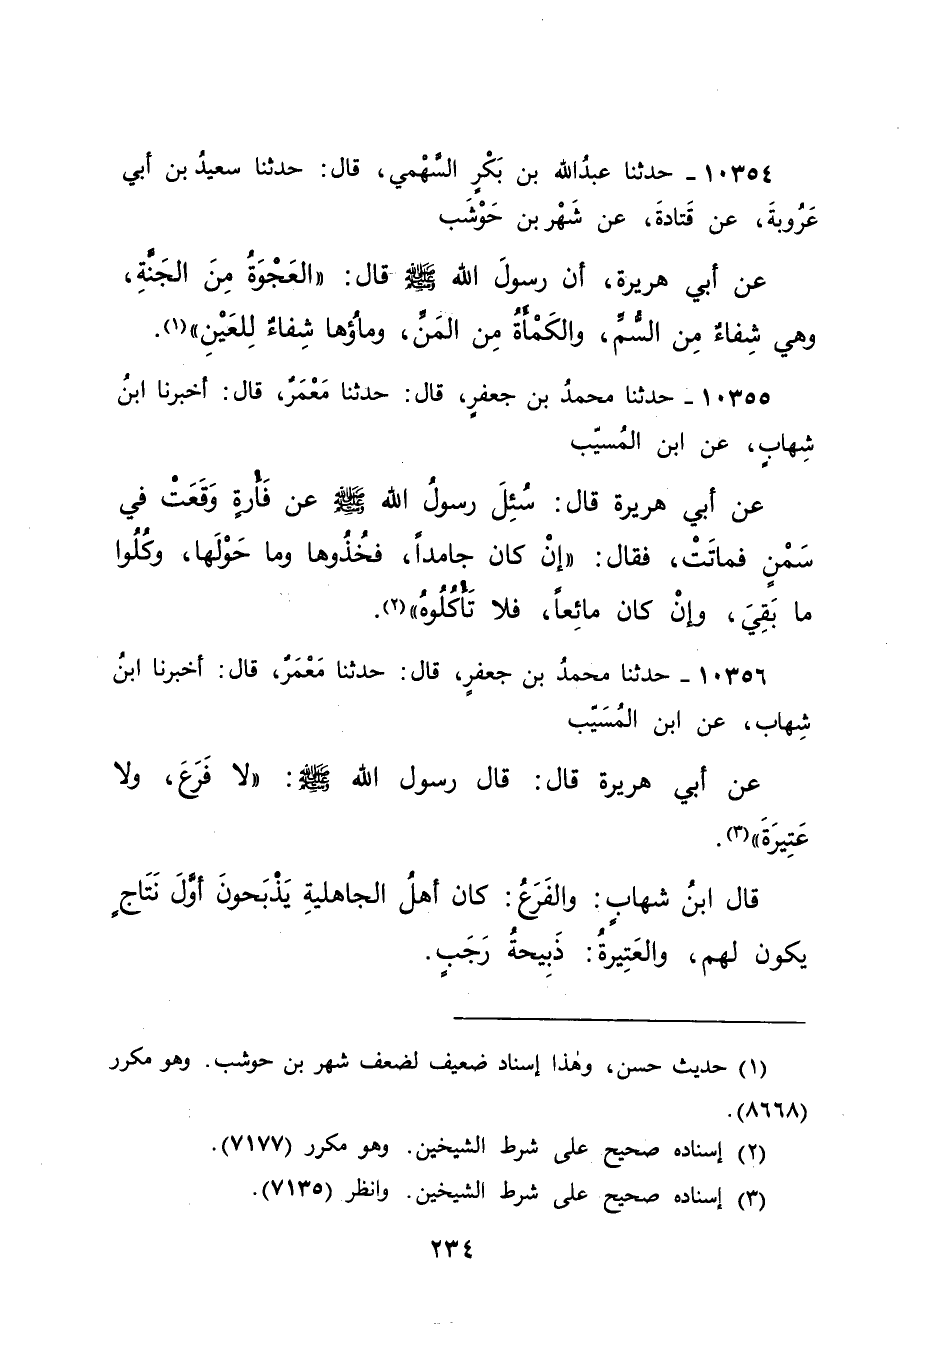 ١٠٣٥٤ ـ حدثنا عبدُالله بن بَكْرٍ السَّهْمي، قال: حدثنا سعيدُ بن أبي
عَرُوبةَ، عن قَتادةَ، عن شَهْر بن حَوْشَب
عن أبي هريرة، أن رسولَ الله ﷺ قال: «العَجْوَةُ مِنَ الجَنَّةِ،
وهي شِفاءٌ مِن السُّمِّ، والكَمْأَةُ مِن المَنِّ، وماؤها شِفاءٌ لِلعَيْنِ»(١).
١٠٣٥٥ ـ حدثنا محمدُ بن جعفرٍ، قال: حدثنا مَعْمَرٌ، قال: أخبرنا ابنُ
شِهابٍ، عن ابن المُسيّب
عن أبي هريرة قال: سُئِلَ رسولُ الله ﷺ عن فَأْرةٍ وَقَعَتْ في
سَمْنٍ فماتَتْ، فقال: «إنْ كان جامداً، فخُذُوها وما حَوْلَها، وكُلُوا
ما بَقِيَ، وإنْ كان مائِعاً، فلا تَأْكُلُوهُ»(٢).
١٠٣٥٦ ـ حدثنا محمدُ بن جعفرٍ، قال: حدثنا مَعْمَرٌ، قال: أخبرنا ابنُ
شِهاب، عن ابن المُسَيّب
عن أبي هريرة قال: قال رسول الله ﷺ: «لا فَرَعَ، ولا
عَتِيرَةَ»(٣).
قال ابنُ شهابٍ: والفَرَعُ: كان أهلُ الجاهليةِ يَذْبَحونَ أوَّلَ نَتَاجٍ
يكون لهم، والعَتِيرةُ: ذَبِيحةُ رَجَبٍ.
(١) حديث حسن، وهٰذا إسناد ضعيف لضعف شهر بن حوشب. وهو مكرر
(٨٦٦٨).
(٢) إسناده صحيح على شرط الشيخين. وهو مكرر (٧١٧٧).
(٣) إسناده صحيح على شرط الشيخين. وانظر (٧١٣٥).
٢٣٤